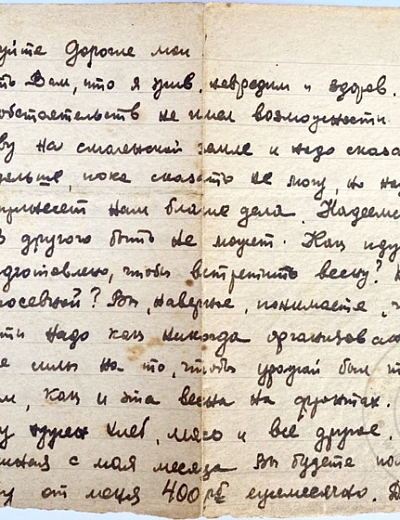 уйте Дорогие мои
ть Вам, что я жив, невредим и здоров.
обстоятельств не имел возможности
ву на смоленской земле и надо сказа
дельте, пока сказать не могу, но на
принесет нам благие дела. Надеемс
в другого быть не может. Как иду
одготовлено, чтобы встретить весну?
посевной? Вы, наверное, понимаете, ч
ти надо как никогда организова
е силы на то, чтобы урожай был
м, как и эта весна на фронтах.
у нужен хлеб, мясо и всё другое.
чиная с мая месяца Вы будете пол
ву от меня 400 руб ежемесячно.